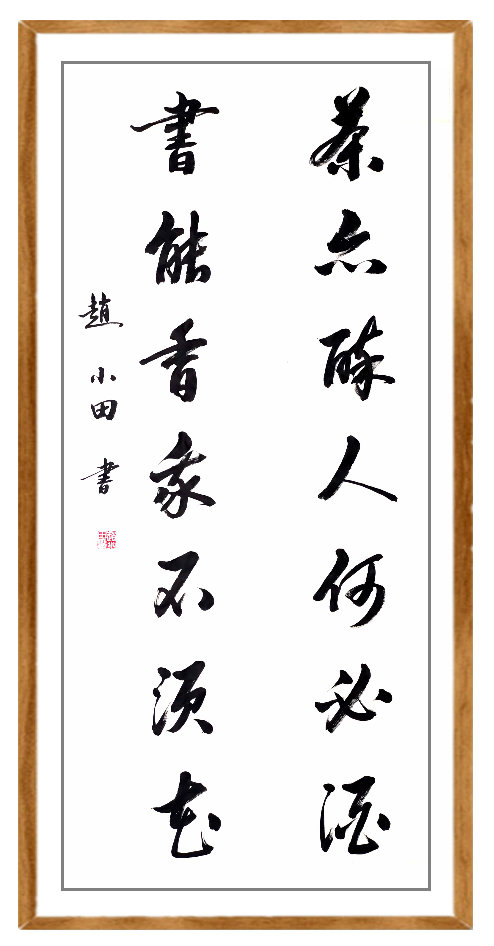 茶亦醉人何必酒
書能香我不須花
趙小田書